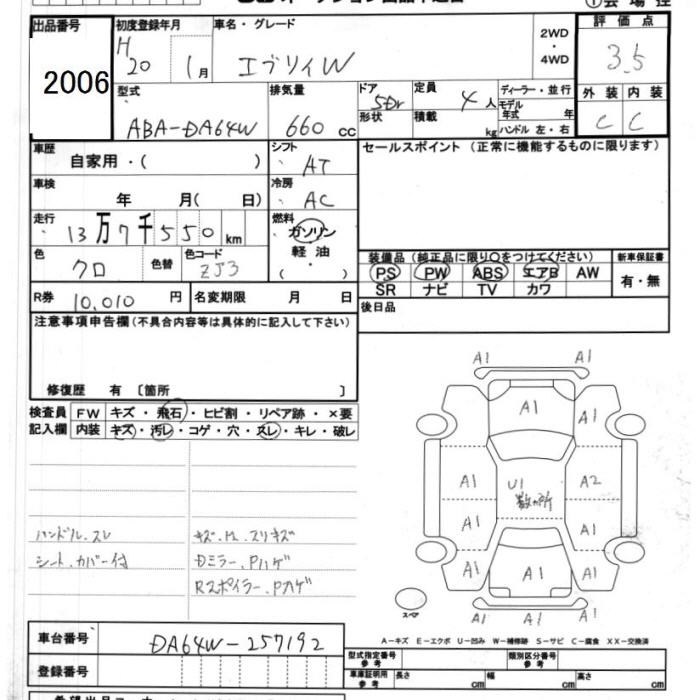 出品番号 初度登録年月 車名・グレード 2WD・4WD 評価点
2006 H 20 1月 エブリィW 3.5
型式 排気量 ドア 形状 定員 積載 ディーラー・並行 外装 内装
ABA-DA64W 660 cc 5Dr 4人 kg モデル年式 年 ハンドル 左・右 C C
車歴 自家用・( ) シフト AT セールスポイント(正常に機能するものに限ります)
車検 年 月( 日) 冷房 AC
走行 13万7千550km 燃料 ガソリン・軽油・
色 クロ 色替 色コード ZJ3 装備品(純正品に限り○をつけてください) 新車保証書
PS PW ABS エアB AW 有・無
SR ナビ TV カワ
R券 10,010円 名変期限 月 日 後日品
注意事項申告欄(不具合内容等は具体的に記入して下さい)
修復歴 有 [箇所 ]
検査員 FW キズ・飛石・ヒビ割・リペア跡・×要
記入欄 内装 キズ・汚レ・コゲ・穴・スレ・キレ・破レ
A1 A1
A1
A1 U1 数ヶ所 A2
A1 A1
A1 A1 A1
A1 A1 A1
ハンドル.スレ キズ.凹.スリキズ
シート.カバー付 Dミラー.Pハゲ
Rスポイラー.Pハゲ
スペア
A-キズ E-エクボ U-凹み W-補修跡 S-サビ C-腐食 XX-交換済
車台番号 DA64W-257192
型式指定番号 参考 類別区分番号 参考
登録番号 車庫証明用 参考 長さ cm 幅 cm 高さ cm